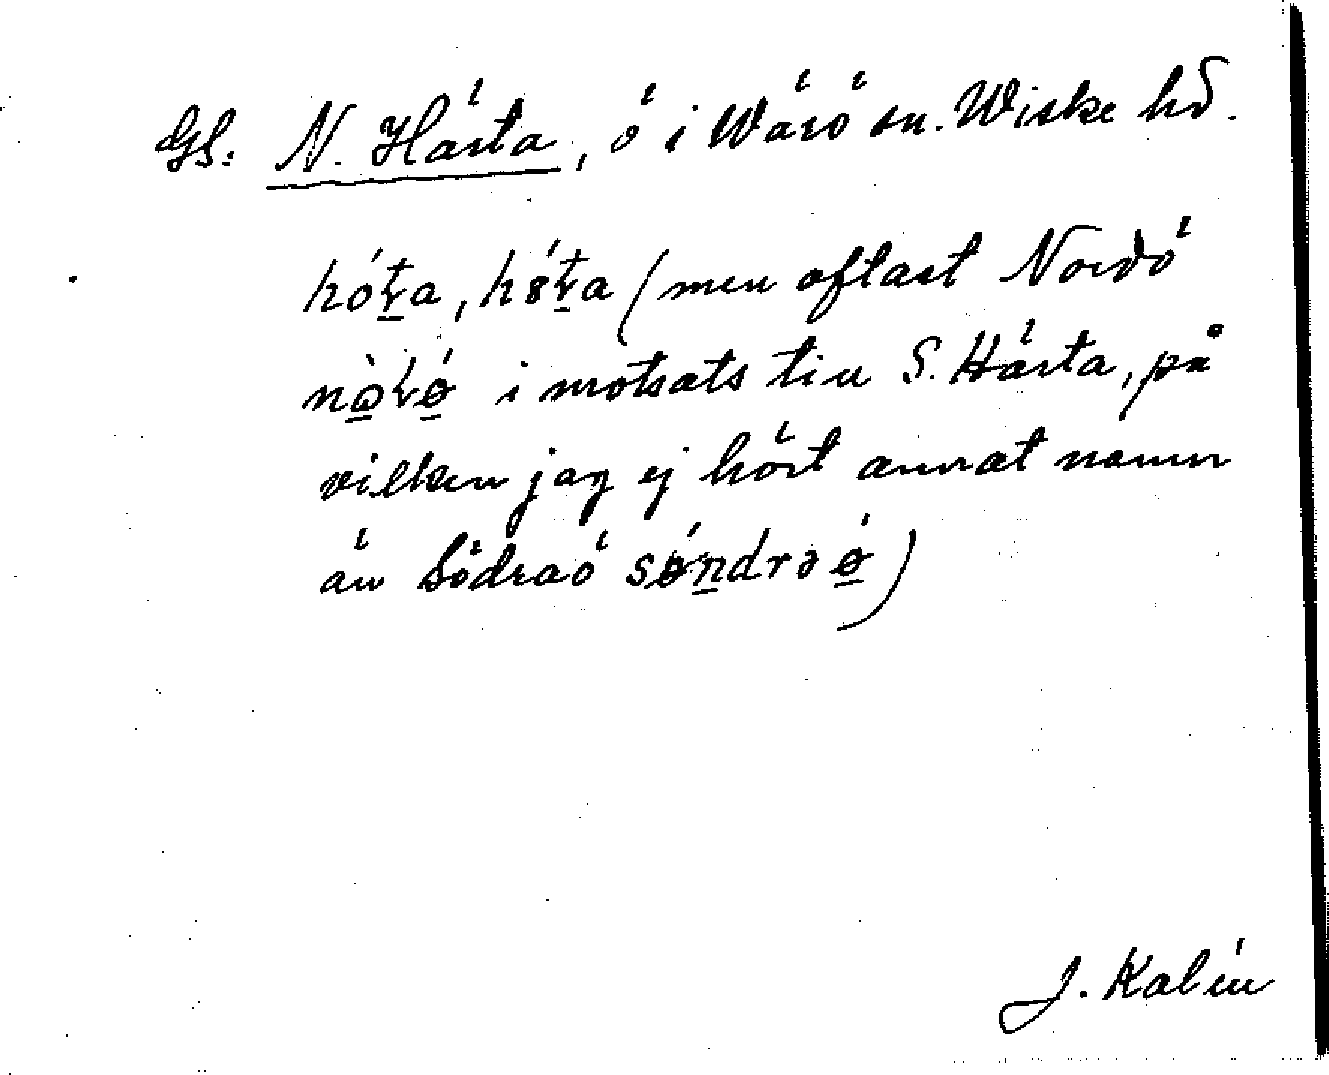 Gs. N. Härta, ö i Wärö sn. Wiske hd.
hóṱa, hśṱa (men oftast Nordö
nò̱rǿ̱ i motsats till S. Härta, på
vilken jag ej hört annat namn
än Södraö sǿ̱ṉdrəǿ̱)
J. Kalén